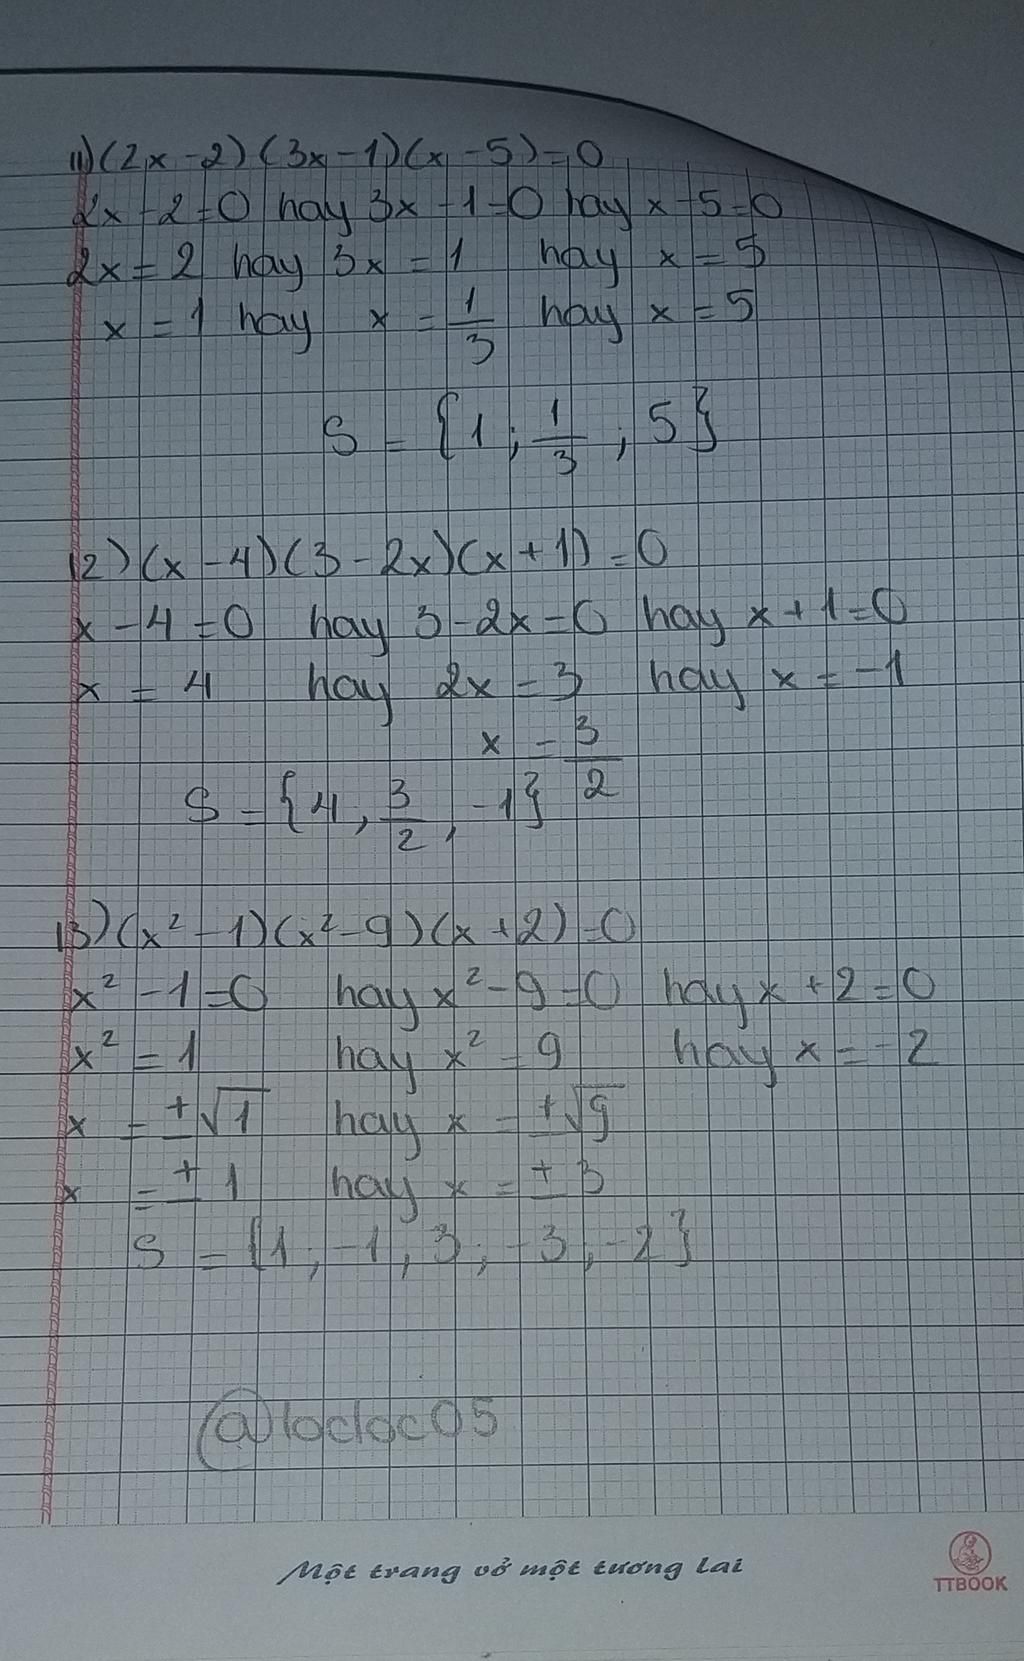 11) (2x - 2) (3x - 1) (x - 5) = 0
2x - 2 = 0 hay 3x - 1 = 0 hay x - 5 = 0
2x = 2 hay 3x = 1 hay x = 5
x = 1 hay x = 1/3 hay x = 5
S = {1; 1/3; 5}
12) (x - 4) (3 - 2x) (x + 1) = 0
x - 4 = 0 hay 3 - 2x = 0 hay x + 1 = 0
x = 4 hay 2x = 3 hay x = -1
x = 3/2
S = {4, 3/2, -1}
13) (x² - 1) (x² - 9) (x + 2) = 0
x² - 1 = 0 hay x² - 9 = 0 hay x + 2 = 0
x² = 1 hay x² = 9 hay x = -2
x = ±√1 hay x = ±√9
x = ± 1 hay x = ± 3
S = {1; -1, 3; -3; -2}
@locloc05
Một trang vở một tương lai
TTBOOK